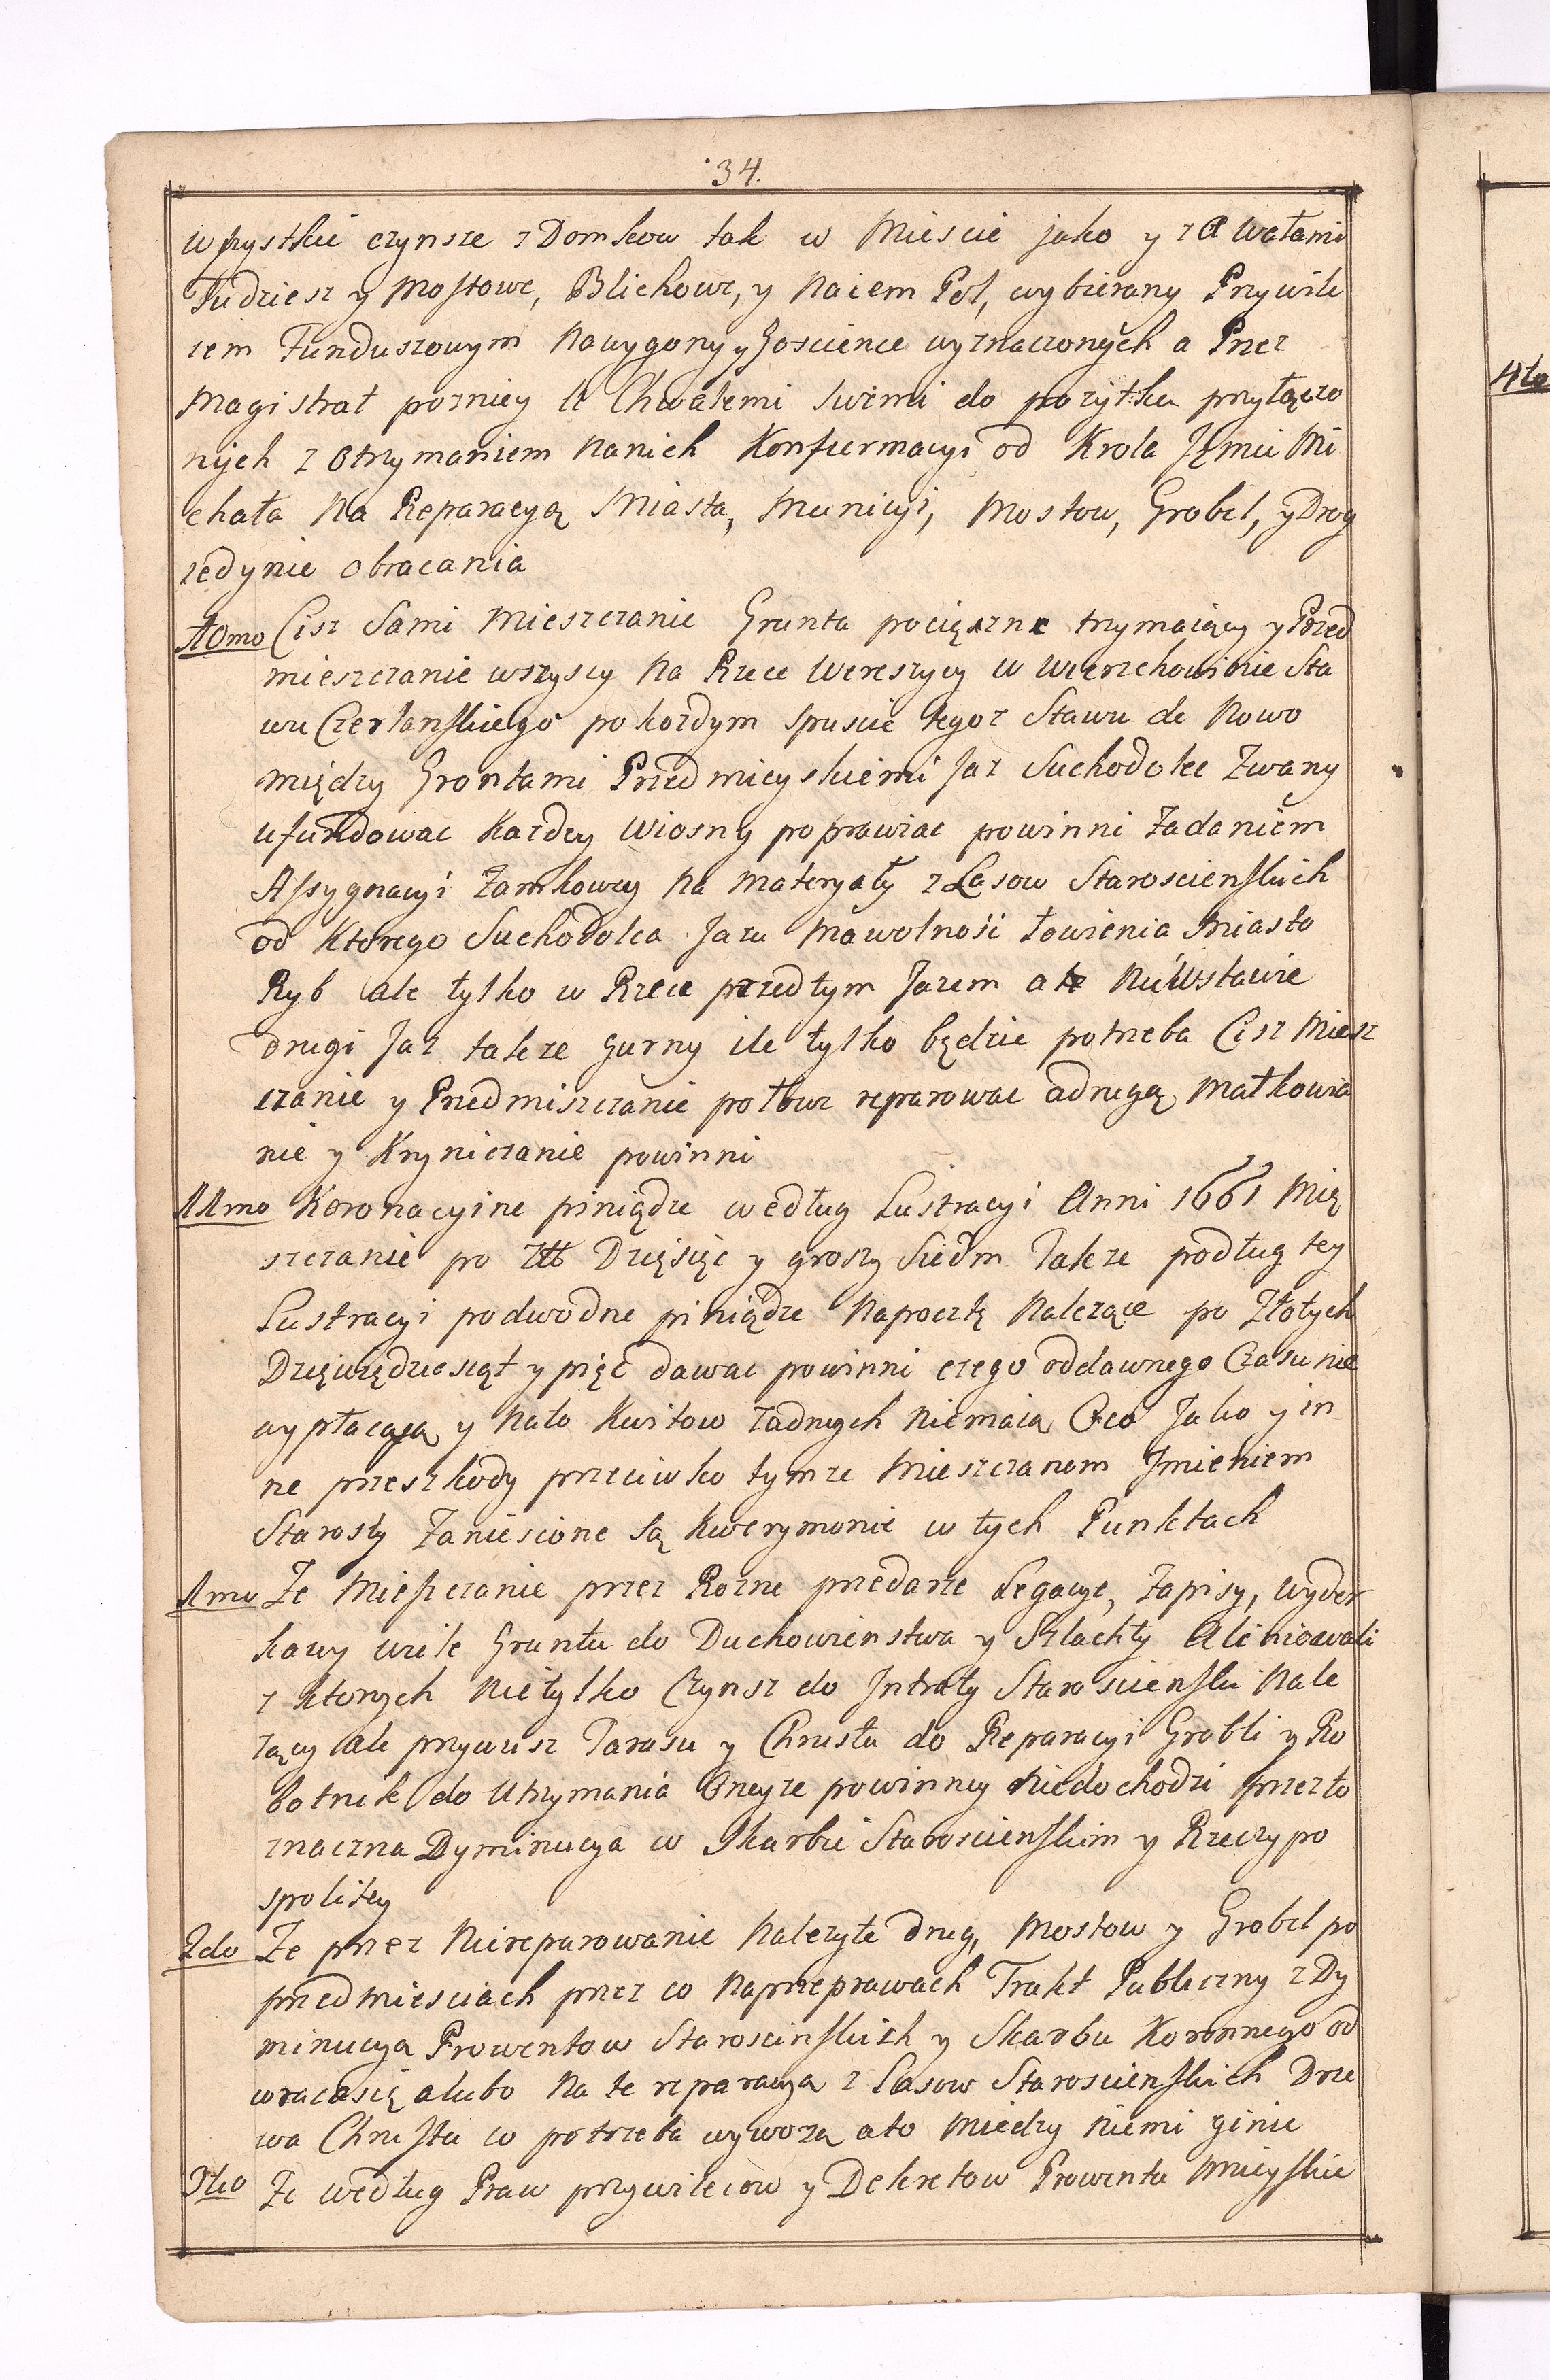 34.
wszystkie czynsze z Domkow tak w Miescie jako y za Wałami
Tudziesz y Mostowe, Blichowe, y Naiem Pol, wybierany Przywile
iem Funduszowym Nawygony y Goscience wyznaczonych a Przez
Magistrat pozniey Uchwałemi swemi do pozytku przyłączo
nych z Otrzymaniem Nanich Konfirmacyi od Krola Jęmci Mi
chała Na Reparacyą Miasta, Municyi, Mostow, Grobel, y Drog
iedynie obracania
10mo Cisz Sami Mieszczanie Grunta pociężne trzymaiący y Przed
mieszczanie wszyscy Na Rzece Wereszycy w Wierzchowinie Sta
wu Czerlanskiego po kozdym spuscie tegoz Stawu de Nowo
między Grontami Przedmieyskiemi Jaz Suchodolec Zwany
ufundowac Kazdey Wiosny poprawiac powinni Zadaniem
Assygnacyi Zamkowey Na Materyały z Lasow Staroscienskich
od Ktorego Suchodolca Jazu Mawolność Łowienia Miasto
Ryb ale tylko w Rzece przedtym Jazem ale Niewstawie
drugi Jaz takze Gurny ile tylko będzie potrzeba Cisz Miesz
czanie y Przedmiszczanie połowe reparowac adrugą Małkowia
nie y Kryniczanie powinni
11mo Koronacyine piniądze według Lustracyi Anni 1661 Mię
szczanie po Złł Dzięsięc y groszy siedm Takze podług tey
Lustracyi podwodne piniądze Napocztę Nalezące po Złotych
Dzięwzędziesiąt y pięć dawac powinni czego oddawnego Czasu nie
wypłacają y Nato Kwitow zadnych Niemaią Oco Jako y in
ne przeszkody przeciwko tymze Mieszczanom Jmieniem
Starosty Zaniesione są Kwerymonie w tych Punktach
1mo Ze Mieszczanie przez Rozne przedarze Legacye, Zapisy, Wyder
kawy wiele Gruntu do Duchowienstwa y Szlachty Alieniowali
z ktorych Nietylko Czynsz do Jntraty Staroscienski Nale
zący ale przywusz Tarasu y Chrustu do Reparacyi Grobli y Ro
botnik do Utrzymania Oneyze powinney Niedochodzi przezto
znaczna Dyminucya w Skarbie Staroscienskim y Rzeczypo
spolitey
2do Ze przez Niereparowanie Nalezyte drug, Mostow y Grobel po
przedmiesciach przez co Naprzeprawach Trakt Publiczny z Dy
minucyą Prowentow Staroscinskich y Skarbu Koronnego od
wracasię alubo Na te reparacyą z Lasow Staroscienskich Drze
wa Chrustu w potrzeba wywozą ato Miedzy Niemi ginie
3tio Ze według Praw przywileiow y Dekretow Prowentu Mieyskie
4to